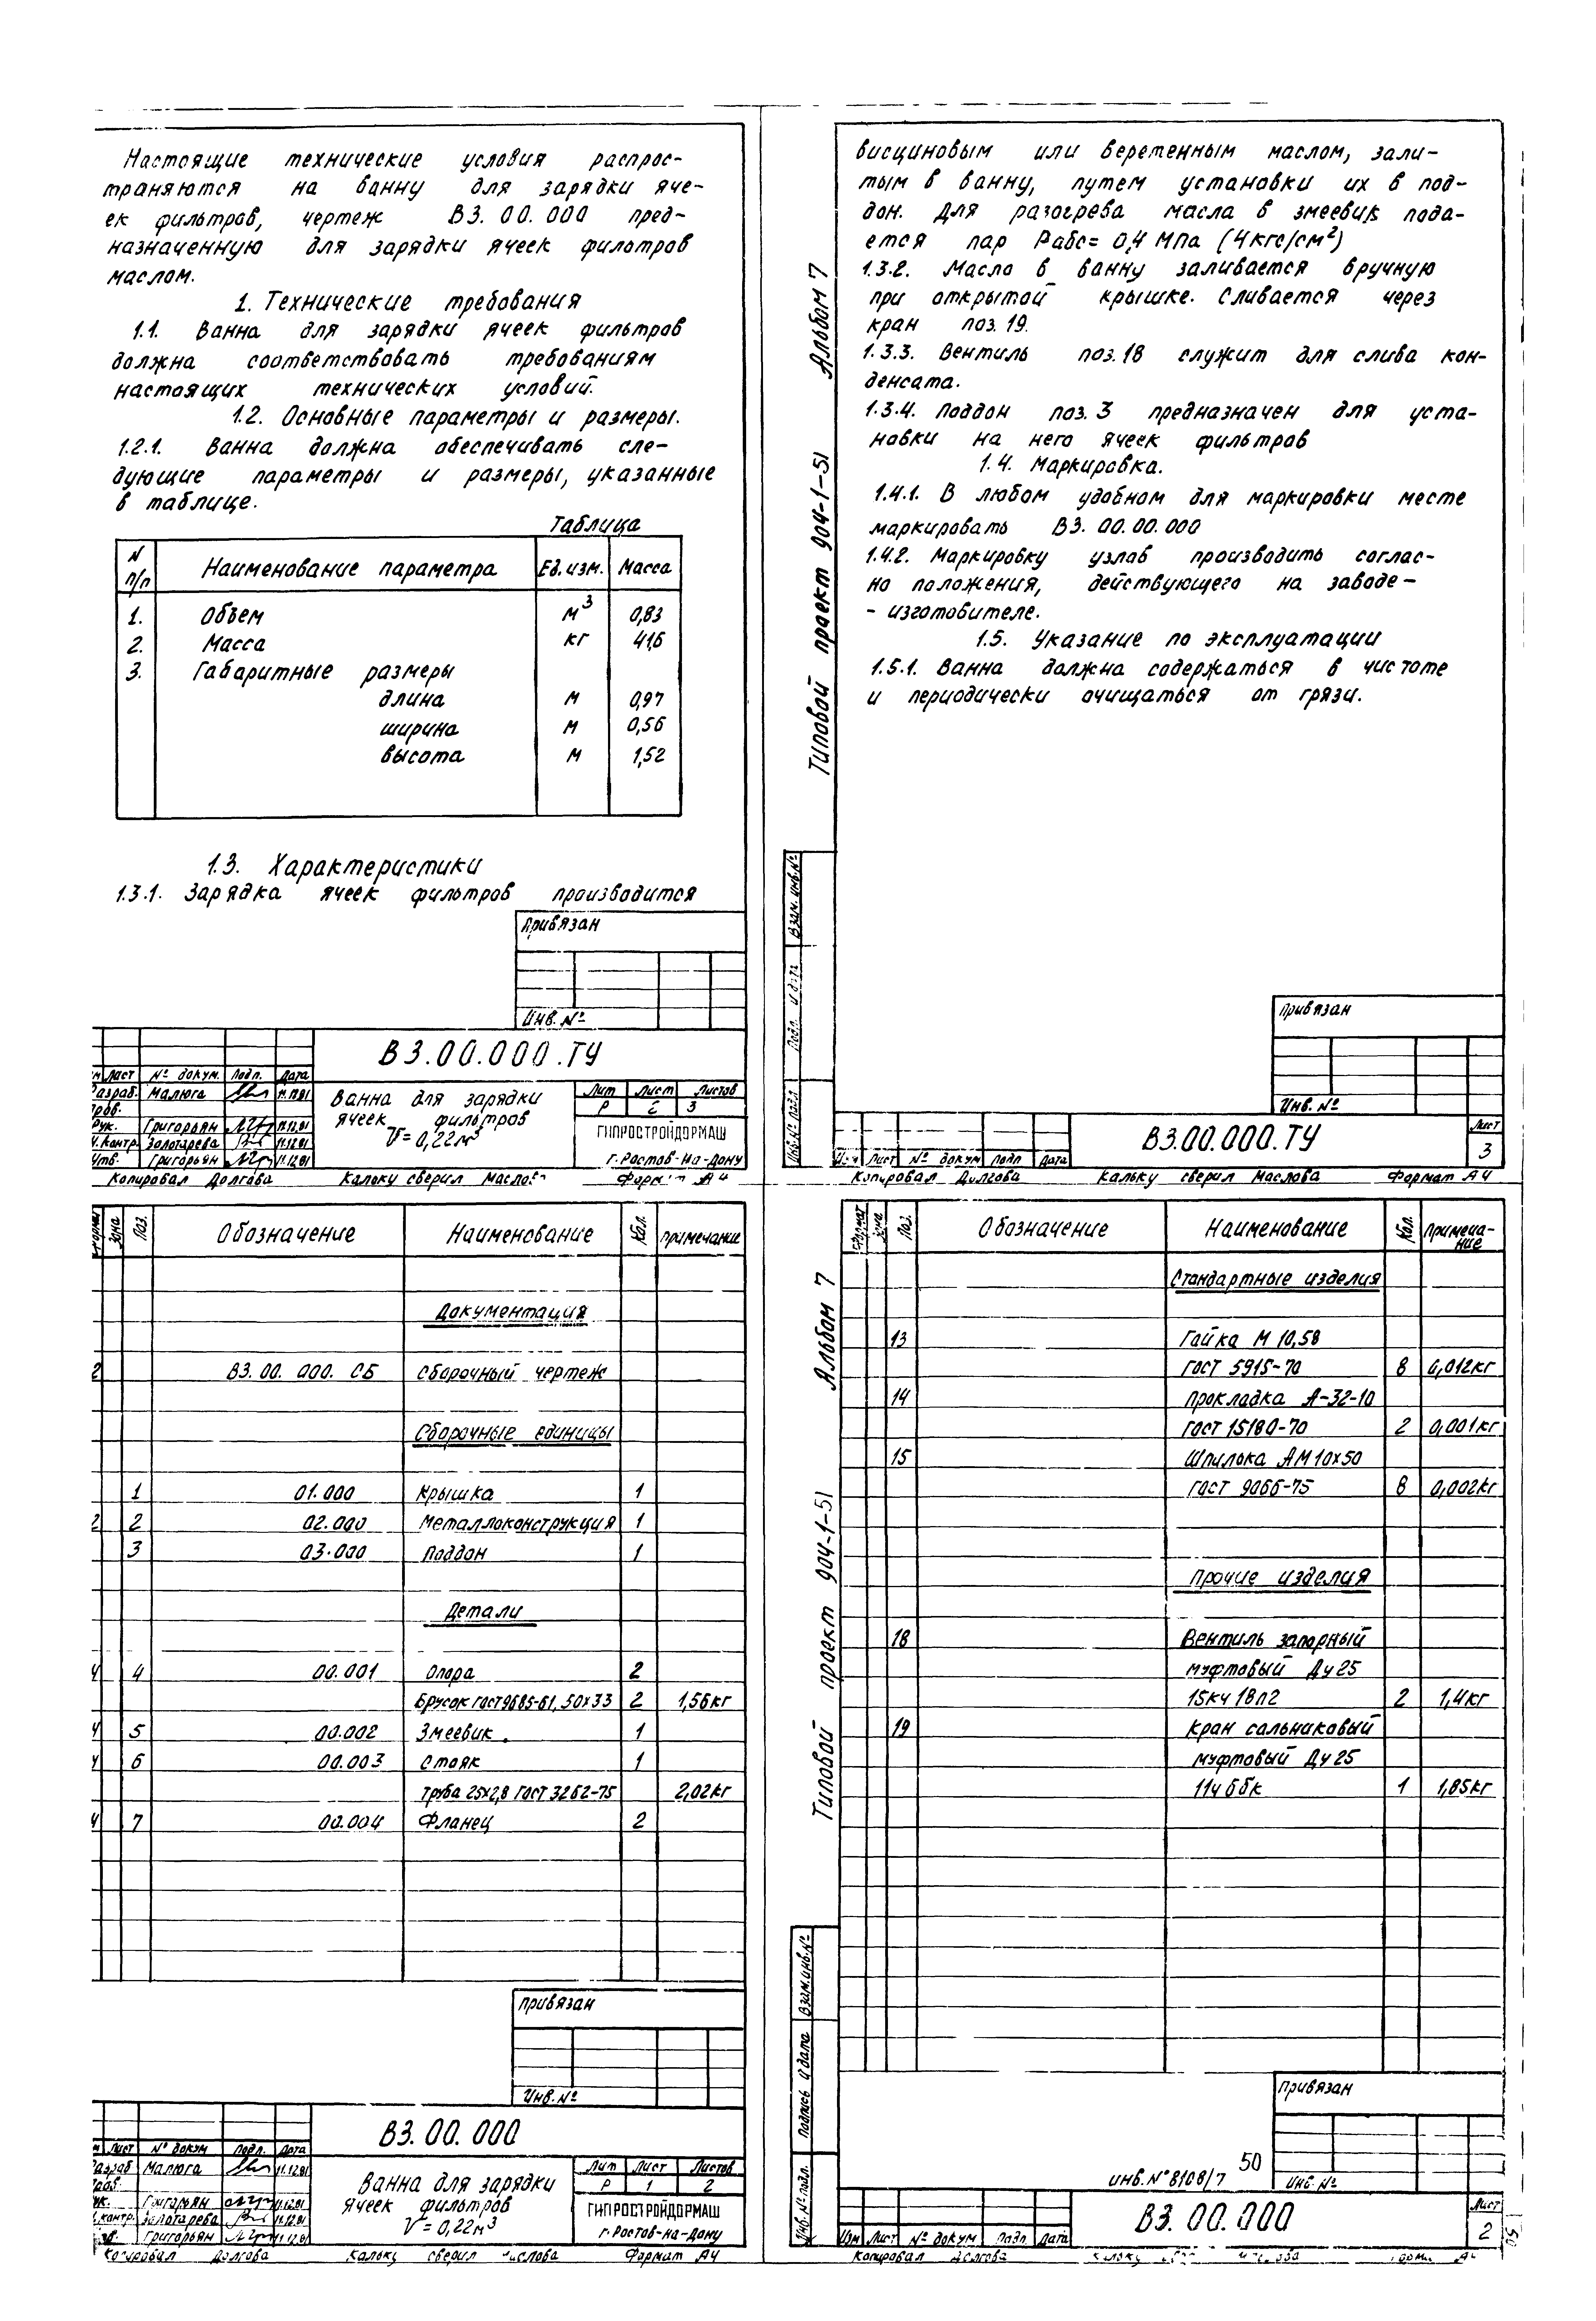 Настоящие технические условия распрос-
траняются на ванну для зарядки яче-
ек фильтров, чертеж В3.00.000 пред-
назначенную для зарядки ячеек фильтров
маслом.
1. Технические требования
1.1. Ванна для зарядки ячеек фильтров
должна соответствовать требованиям
настоящих технических условий.
1.2. Основные параметры и размеры.
1.2.1. Ванна должна обеспечивать сле-
дующие параметры и размеры, указанные
в таблице.
Таблица
N п/п Наименование параметра Ед. изм. Масса
1. Объем м³ 0,83
2. Масса кг 41,6
3. Габаритные размеры
длина м 0,97
ширина м 0,56
высота м 1,52
1.3. Характеристики
1.3.1. Зарядка ячеек фильтров производится
Привязан
Инв. №
В3.00.000.ТУ
Лист № докум. Подп. Дата
Разраб. Малюга 11.12.81
Пров.
Рук. Григорьян 11.12.81
Н.контр. Золотарева 11.12.81
Утв. Григорьян 11.12.81
Ванна для зарядки
ячеек фильтров
V=0,22м³
Лит Лист Листов
Р 2 3
ГИПРОСТРОЙДОРМАШ
г. Ростов-на-Дону
Копировал Долгова Кальку сверил Маслова Формат А4
Альбом 7
Типовой проект 904-1-51
висциновым или веретенным маслом, зали-
тым в ванну, путем установки их в под-
дон. Для разогрева масла в змеевик пода-
ется пар Рабс= 0,4 МПа (4кгс/см²)
1.3.2. Масло в ванну заливается вручную
при открытой крышке. Сливается через
кран поз. 19.
1.3.3. Вентиль поз. 18 служит для слива кон-
денсата.
1.3.4. Поддон поз. 3 предназначен для уста-
новки на него ячеек фильтров
1.4. Маркировка.
1.4.1. В любом удобном для маркировки месте
маркировать В3. 00. 00. 000
1.4.2. Маркировку узлов производить соглас-
но положения, действующего на заводе-
- изготовителе.
1.5. Указание по эксплуатации
1.5.1. Ванна должна содержаться в чистоте
и периодически очищаться от грязи.
Взам. инв. №
Подп. и дата
Инв. № подл.
Привязан
Инв. №
Изм Лист № докум Подп Дата
В3.00.000.ТУ
Лист
3
Копировал Долгова Кальку сверил Маслова Формат А4
Формат Зона Поз. Обозначение Наименование Кол. Примечание
Документация
2 В3. 00. 000. СБ Сборочный чертеж
Сборочные единицы
1 01.000 Крышка 1
2 2 02.000 Металлоконструкция 1
3 03.000 Поддон 1
Детали
4 4 00.001 Опора 2
Брусок гост 9685-61, 50х33 2 1,56кг
4 5 00.002 Змеевик. 1
4 6 00.003 Стояк 1
Труба 25х2,8 ГОСТ 3262-75 2,02кг
4 7 00.004 Фланец 2
Привязан
Инв. №
В3. 00. 000
Лист № докум Подп. Дата
Разраб Малюга 11.12.81
Пров.
Рук. Григорьян 11.12.81
Н.контр. Золотарева 11.12.81
Утв. Григорьян 11.12.81
Ванна для зарядки
ячеек фильтров
V=0,22м³
Лит Лист Листов
Р 1 2
ГИПРОСТРОЙДОРМАШ
г. Ростов-на-Дону
Копировал Долгова Кальку сверил Маслова Формат А4
Альбом 7
Типовой проект 904-1-51
Формат Зона Поз. Обозначение Наименование Кол. Примеча-
ние
Стандартные изделия
13 Гайка М 10,58
ГОСТ 5915-70 8 0,012кг
14 Прокладка А-32-10
ГОСТ 15180-70 2 0,001кг
15 Шпилька АМ10х50
ГОСТ 9066-75 8 0,002кг
Прочие изделия
18 Вентиль запорный
муфтовый Ду 25
15кч 18п2 2 1,4кг
19 Кран сальниковый
муфтовый Ду 25
11ч 6бк 1 1,85кг
Взам.инв.№
Подпись и дата
Инв. № подл.
Привязан
Инв. №
50
инв. № 8108/7
Изм Лист № докум Подп. Дата
В3. 00. 000
Лист
2
Копировал Долгова